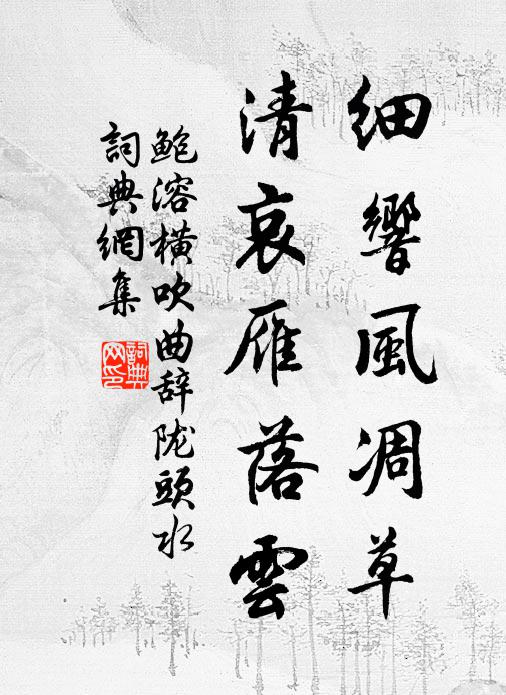 細響風凋草
清哀雁落雲
鲍溶横吹曲辞陇頭水
詞典網集
詞典网印